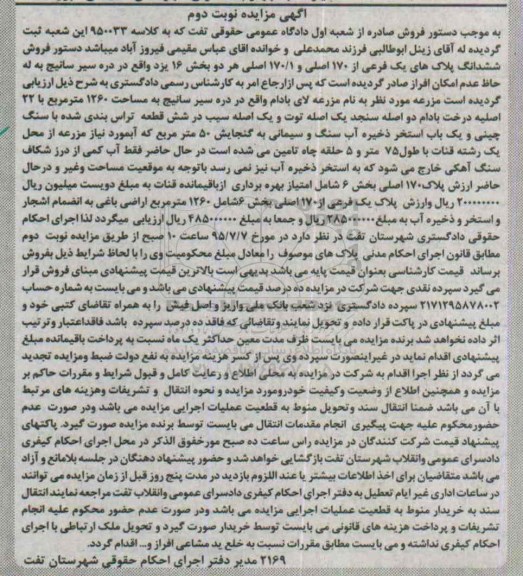 آگهی مزایده نوبت دوم
به موجب دستور فروش صادره از شعبه اول دادگاه عمومی حقوقی تفت که به کلاسه ۹۵۰۰۳۳ این شعبه ثبت
گردیده له آقای زینل ابوطالبی فرزند محمدعلی و خوانده اقای عباس مقیمی فیروز آباد میباشد دستور فروش
ششدانگ پلاک های یک فرعی از ۱۷۰ اصلی و ۱۷۰/۱ اصلی هر دو بخش ۱۶ یزد واقع در دره سیر سانیج به له
حاظ عدم امکان افراز صادر گردیده است که پس ازارجاع امر به کارشناس رسمی دادگستری به شرح ذیل ارزیابی
گردیده است مزرعه مورد نظر به نام مزرعه لای بادام واقع در دره سیر سانیج به مساحت ۱۲۶۰ مترمربع با ۲۲
اصلیه درخت بادام دو اصله سنجد یک اصله توت و یک اصله سیب در شش قطعه تراس بندی شده با سنگ
چینی و یک باب استخر ذخیره آب سنگ و سیمانی به گنجایش ۵۰ متر مربع که آبمورد نیاز مزرعه از محل
یک رشته قنات با طول۷۵ متر و ۵ حلقه چاه تامین می شده است در حال حاضر فقط آب کمی از درز شکاف
سنگ آهکی خارج می شود که به استخر ذخیره آب نیز نمی رسد باتوجه به موقعیت مساحت وغیر و درحال
حاضر ارزش پلاک۱۷۰ اصلی بخش ۶ شامل امتیاز بهره برداری ازباقیمانده قنات به مبلغ دویست میلیون ریال
۲۰۰۰۰۰۰۰۰ ریال وارزش پلاک یک فرعی از۱۷۰ اصلی بخش ۶شامل ۱۲۶۰ مترمربع اراضی باغی به انضمام اشجار
و استخر و ذخیره آب به مبلغ ۲۸۵۰۰۰۰۰۰ ریال و جمعا به مبلغ ۴۸۵۰۰۰۰۰۰ ریال ارزیابی میگردد لذا اجرای احکام
حقوقی دادگستری شهرستان تفت در نظر دارد در مورخ ۹۵/۷/۷ ساعت ۱۰ صبح از طریق مزایده نوبت دوم
مطابق قانون اجرای احکام مدنی پلاک های موصوف را معادل مبلغ محکومیت وی را با لحاظ شرایط ذیل بفروش
برساند قیمت کارشناسی بعنوان قیمت پایه می باشد بدیهی است بالاترین قیمت پیشنهادی مبنای فروش قرار
می گیرد سپرده نقدی جهت شرکت در مزایده ده درصد قیمت پیشنهادی می باشد و می بایست به شماره حساب
۲۱۷۱۲۹۵۸۷۸۰۰۲ سپرده دادگستری یزد شعب بانک ملی واریز و اصل فیش را به همراه تقاضای کتبی خود و
مبلغ پیشنهادی در پاکت قرار داده و تحویل نمایند و تقاضائی که فاقد ده درصد سپرده باشد فاقداعتبار وترتیب
اثر داده نخواهد شد برنده مزایده می بایست ظرف مدت معین حداکثر یک ماه نسبت به پرداخت باقیمانده مبلغ
پیشنهادی اقدام نماید در غیراینصورت سپرده وی پس از کسر هزینه مزایده به نفع دولت ضبط ومزایده تجدید
می گردد از نظر اجرا اقدام به شرکت در مزایده به محلی اطلاع و رعایت کامل و قبول شرایط و مقررات حاکم بر
مزایده و همچنین اطلاع از وضعیت وکیفیت خودرومورد مزایده و نحوه انتقال و تشریفات وهزینه های مرتبط
با آن می باشد ضمنا انتقال سند وتحویل منوط به قطعیت عملیات اجرایی مزایده می باشد ودر صورت عدم
حضورمحکوم علیه جهت پیگیری انجام مقدمات انتقال می بایست توسط برنده مزایده صورت گیرد. پاکتهای
پیشنهاد قیمت شرکت کنندگان در مزایده راس ساعت ده صبح مورخفوق الذکر در محل اجرای احکام کیفری
دادسرای عمومی وانقلاب شهرستان تفت بازگشایی خواهد شد و حضور پیشنهاد دهنگان در جلسه بلامانع و آزاد
می باشد متقاضیان برای اخذ اطلاعات بیشتر یا عند اللزوم بازدید در مدت پنج روز قبل از زمان مزایده می توانند
در ساعات اداری غیر ایام تعطیل به دفتر اجرای احکام کیفری دادسرای عمومی وانقلاب تفت مراجعه نمایند انتقال
سند به خریدار منوط به قطعیت عملیات اجرایی مزایده می باشد ودر صورت عدم حضور محکوم علیه انجام
تشریفات و پرداخت هزینه های قانونی می بایست توسط خریدار صورت گیرد و تحویل ملک ارتباطی با اجرای
احکام کیفری نداشته و می بایست مطابق مقررات نسبت به خلع ید مشاعی افراز و... اقدام گردد.
۲۱۶۹ مدیر دفتر اجرای احکام حقوقی شهرستان تفت